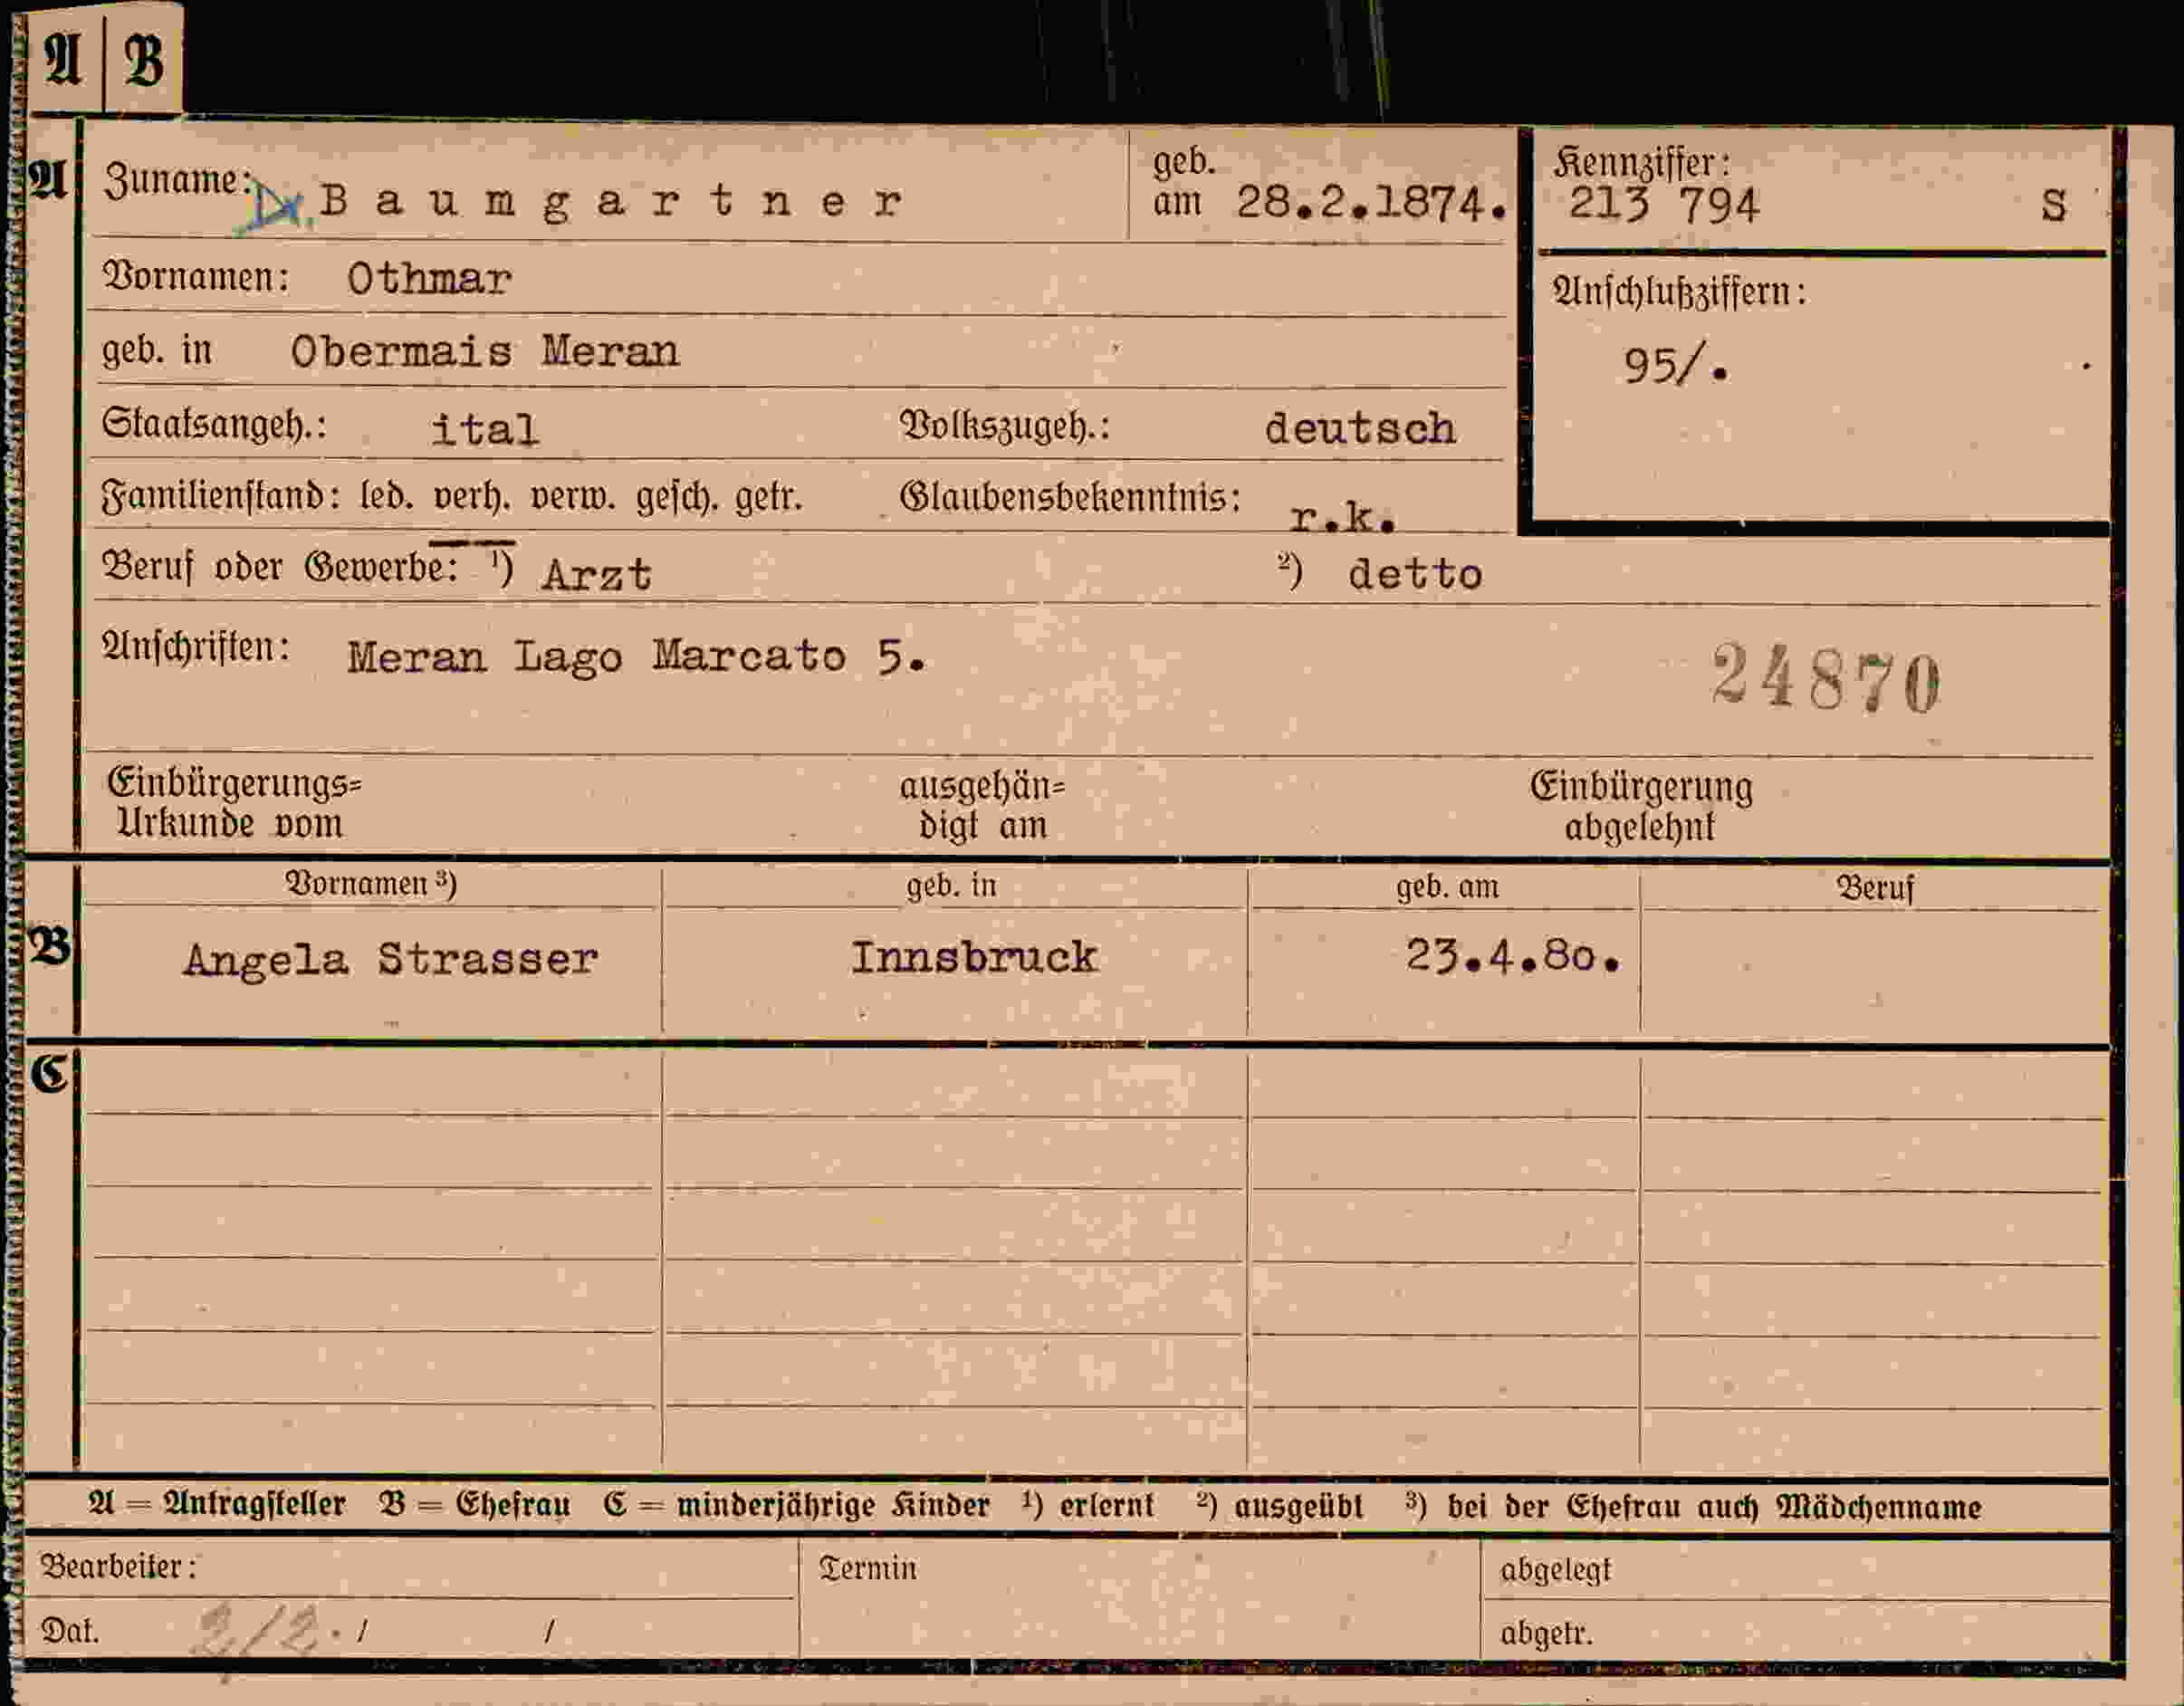 A B
A Zuname: Dr. Baumgartner geb. am 28.2.1874. Kennziffer: 213 794 S
Vornamen: Othmar Anschlußziffern:
geb. in Obermais Meran 95/.
Staatsangeh.: ital Volkszugeh.: deutsch
Familienstand: led. verh. verw. gesch. getr. Glaubensbekenntnis: r.k.
Beruf oder Gewerbe: ¹) Arzt ²) detto
Anschriften: Meran Lago Marcato 5. 24870
Einbürgerungs= ausgehän= Einbürgerung
Urkunde vom digt am abgelehnt
Vornamen ³) geb. in geb. am Beruf
B Angela Strasser Innsbruck 23.4.80.
C
A = Antragsteller B = Ehefrau C = minderjährige Kinder ¹) erlernt ²) ausgeübt ³) bei der Ehefrau auch Mädchenname
Bearbeiter: Termin abgelegt
Dat. 2/2. / / abgetr.